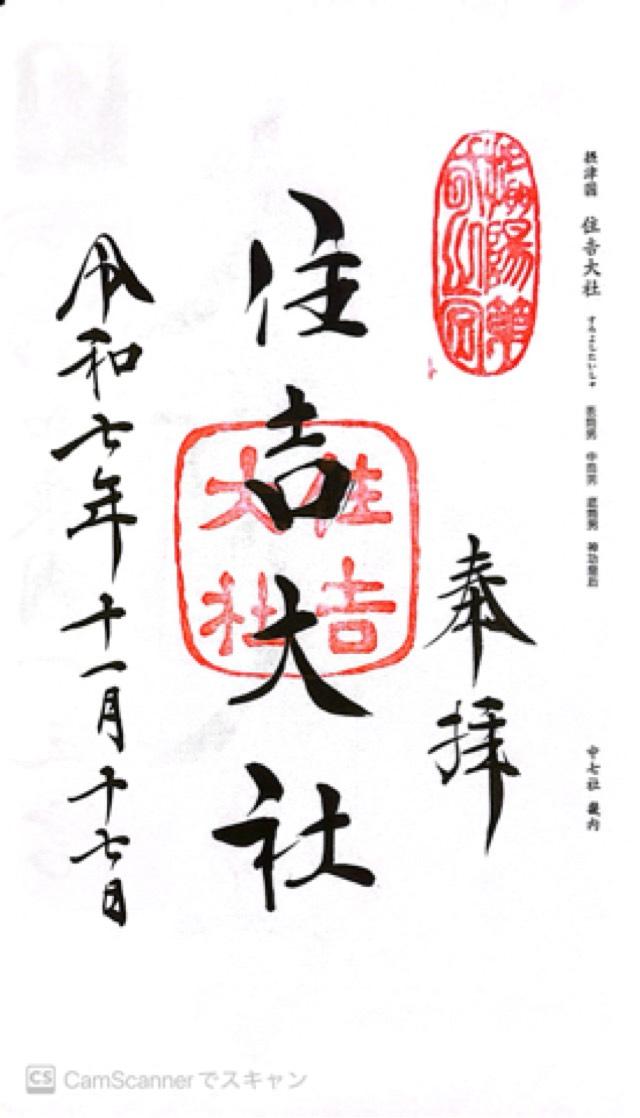 摂津國 住吉大社 すみよしたいしゃ 表筒男 中筒男 底筒男 神功皇后
中七社 畿内
奉拝
住吉大社
住吉大社
令和七年十一月十七日
CS CamScannerでスキャン